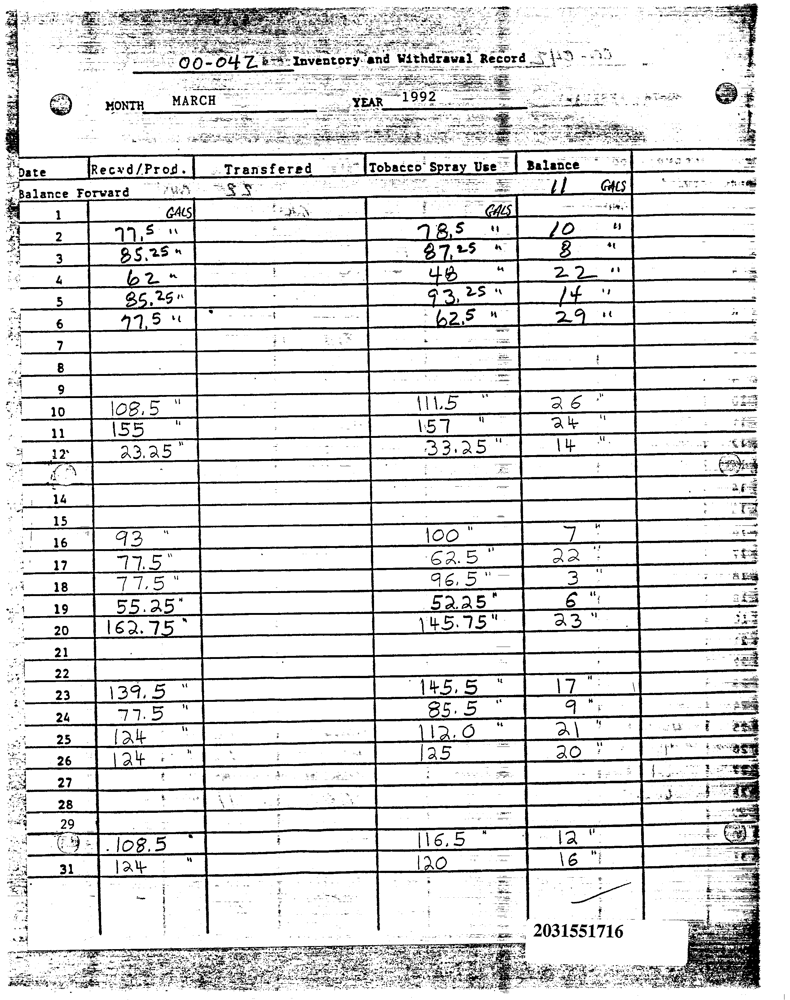 00-042 Inventory and Withdrawal Record
MONTH MARCH YEAR 1992
Date Recvd/Prod. Transfered Tobacco Spray Use Balance
Balance Forward 11 GALS
1 GALS GALS
2 77.5 " 78.5 " 10 "
3 85.25 " 87.25 " 8 "
4 62 " 48 " 22 "
5 85.25 " 93.25 " 14 "
6 77.5 " 62.5 " 29 "
7
8
9
10 108.5 " 111.5 " 26 "
11 155 " 157 " 24 "
12 23.25 " 33.25 " 14 "
14
15
16 93 " 100 " 7 "
17 77.5 " 62.5 " 22 "
18 77.5 " 96.5 " 3 "
19 55.25 " 52.25 " 6 "
20 162.75 " 145.75 " 23 "
21
22
23 139.5 " 145.5 " 17 "
24 77.5 " 85.5 " 9 "
25 124 " 112.0 " 21 "
26 124 " 125 20 "
27
28
29
108.5 " 116.5 " 12 "
31 124 " 120 16 "
2031551716